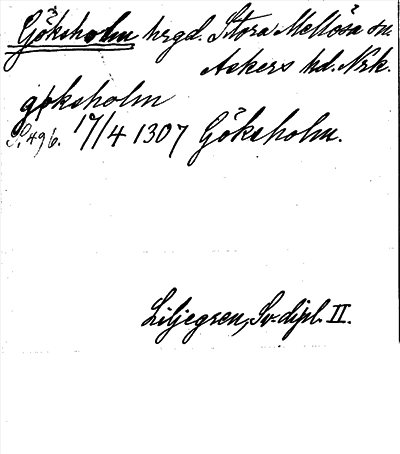 Göksholm hrgd. Stora Mellösa sn.
Askers hd. Nrk.
gøksholm
S. 496. 17/4 1307 Göksholm.
Liljegren, Sv. dipl. II.